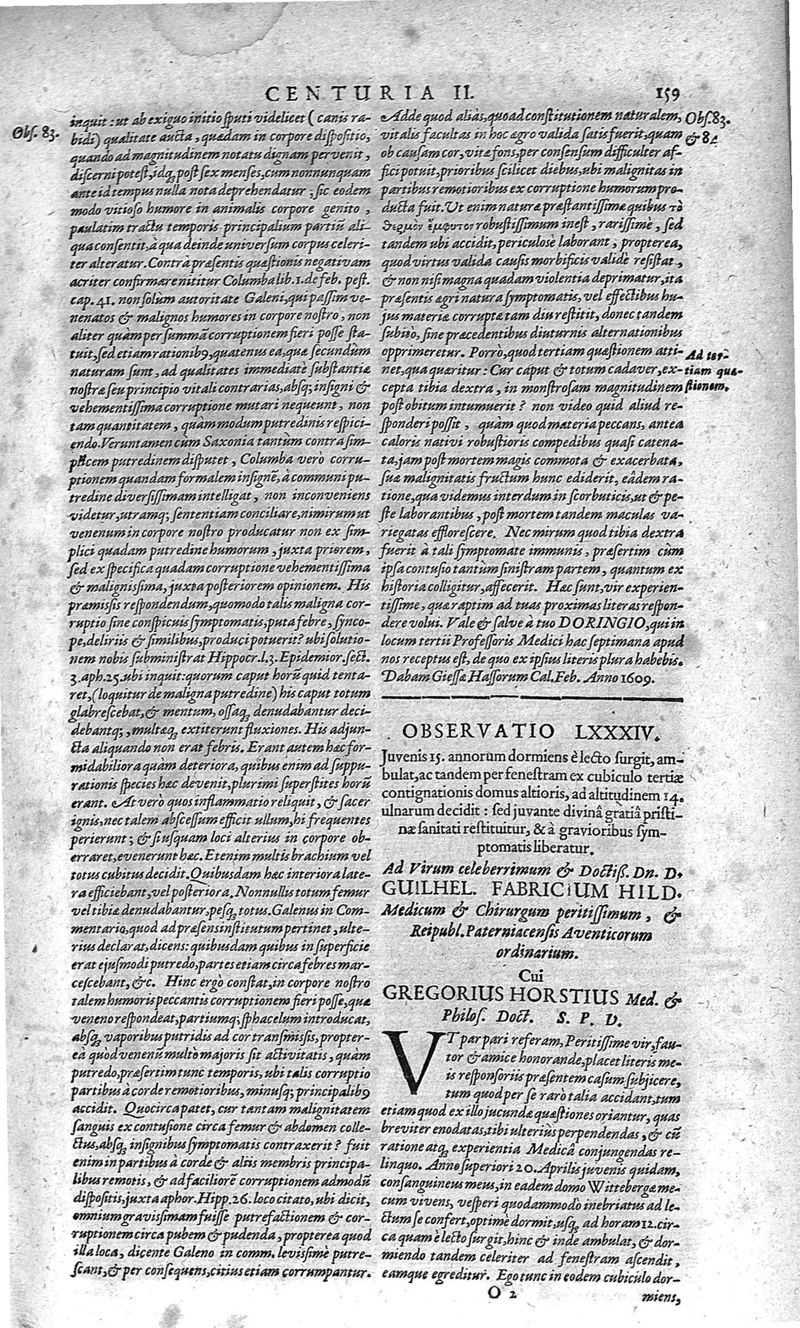 CENTURIA II. 159
Obs. 83.
inquit: ut ab exiguo initio sputi videlicet (canis ra-
bidi) qualitate aucta, quædam in corpore dispositio,
quando ad magnitudinem notatu dignam pervenit,
discerni potest, idq́; post sex menses, cum nonnunquam
ante id tempus nulla nota deprehendatur; sic eodem
modo vitioso humore in animalis corpore genito,
paulatim tractu temporis principalium partiũ ali-
qua consentit, à qua deinde universum corpus celeri-
ter alteratur. Contrà præsentis quæstionis negativam
acriter confirmare nititur Columba lib. 1. de feb. pest.
cap. 41. non solum autoritate Galeni, qui passim ve-
nenatos & malignos humores in corpore nostro, non
aliter quàm per summã corruptionem fieri posse sta-
tuit, sed etiam rationib9, quatenus ea, quæ secundùm
naturam sunt, ad qualitates immediatè substantiæ
nostræ seu principio vitali contrarias, absq; insigni &
vehementissima corruptione mutari nequeunt, non
tam quantitatem, quàm modum putredinis respici-
endo. Veruntamen cum Saxonia tantùm contra sim-
plicem putredinem disputet, Columba verò corru-
ptionem quandam formalem insignẽ, à communi pu-
tredine diversissimam intelligat, non inconveniens
videtur, utramq; sententiam conciliare, nimirum ut
venenum in corpore nostro producatur non ex sim-
plici quadam putredine humorum, juxta priorem,
sed ex specifica quadam corruptione vehementissima
& malignissima, juxta posteriorem opinionem. His
præmissis respondendum, quomodo talis maligna cor-
ruptio sine conspicuis symptomatis, puta febre, synco-
pe, deliriis & similibus, produci potuerit? ubi solutio-
nem nobis subministrat Hippocr. l. 3. Epidemior. sect.
3. aph. 25. ubi inquit: quorum caput horũ quid tenta-
ret, (loquitur de maligna putredine) his caput totum
glabrescebat, & mentum, ossaq́; denudabantur deci-
debantq;, multæq́; extiterunt fluxiones. His adjun-
cta aliquando non erat febris. Erant autem hæc for-
midabiliora quàm deteriora, quibus enim ad suppu-
rationis species hæc devenit, plurimi superstites horũ
erant. At verò quos inflammatio reliquit, & sacer
ignis, nec talem abscessum efficit ullum, hi frequentes
perierunt; & si usquam loci alterius in corpore ob-
erraret, evenerunt hæc. Etenim multis brachium vel
totus cubitus decidit. Quibusdam hæc interiora late-
ra efficiebant, vel posteriora. Nonnullis totum femur
vel tibiæ denudabantur, pesq́; totus. Galenus in Com-
mentario, quod ad præsens institutum pertinet, ulte-
rius declarat, dicens: quibusdam quibus in superficie
erat ejusmodi putredo, partes etiam circa febres mar-
cescebant, &c. Hinc ergò constat, in corpore nostro
talem humoris peccantis corruptionem fieri posse, quæ
veneno respondeat, partiumq; sphacelum introducat,
absq́; vaporibus putridis ad cor transmissis, propter-
ea quòd venenũ multo majoris sit activitatis, quàm
putredo, præsertim tunc temporis, ubi talis corruptio
partibus à corde remotioribus, minusq; principalib9
accidit. Quocirca patet, cur tantam malignitatem
sanguis ex contusione circa femur & abdomen colle-
ctus, absq́; insignibus symptomatis contraxerit? fuit
enim in partibus à corde & aliis membris principa-
libus remotis, & ad faciliorẽ corruptionem admodũ
dispositis, juxta aphor. Hipp. 26. loco citato, ubi dicit,
omnium gravissimam fuisse putrefactionem & cor-
ruptionem circa pubem & pudenda, propterea quod
illa loca, dicente Galeno in comm. levissimè putre-
scant, & per consequens, citius etiam corrumpantur.
Adde quod aliàs, quoad constitutionem naturalem,
vitalis facultas in hoc ægro valida satis fuerit, quam
ob causam cor, vitæ fons, per consensum difficulter af-
fici potuit, prioribus scilicet diebus, ubi malignitas in
partibus remotioribus ex corruptione humorum pro-
ducta fuit. Ut enim naturæ præstantissimæ quibus τὸ
θερμὸν ἔμφυτον robustissimum inest, rarissimè, sed
tandem ubi accidit, periculosè laborant, propterea,
quod virtus valida causis morbificis validè resistat,
& non nisi magna quadam violentia deprimatur, ita
præsentis ægri natura symptomatis, vel effectibus hu-
jus materiæ corruptæ tam diu restitit, donec tandem
subitò, sine præcedentibus diuturnis alternationibus
opprimeretur. Porrò, quod tertiam quæstionem atti-
net, qua quæritur: Cur caput & totum cadaver, ex-
cepta tibia dextra, in monstrosam magnitudinem
post obitum intumuerit? non video quid aliud re-
sponderi possit, quàm quod materia peccans, antea
caloris nativi robustioris compedibus quasi catena-
ta, jam post mortem magis commota & exacerbata,
suæ malignitatis fructum hunc ediderit, eâdem ra-
tione, qua videmus interdum in scorbuticis, ut & pe-
ste laborantibus, post mortem tandem maculas va-
riegatas efflorescere. Nec mirum quod tibia dextra
fuerit à tali symptomate immunis, præsertim cùm
ipsa contusio tantùm sinistram partem, quantum ex
historia colligitur, affecerit. Hæc sunt, vir experien-
tissime, quæ raptim ad tuas proximas literas respon-
dere volui. Vale & salve à tuo DORINGIO, qui in
locum tertii Professoris Medici hac septimana apud
nos receptus est, de quo ex ipsius literis plura habebis.
Dabam Giessæ Hassorum Cal. Feb. Anno 1609.
Obs. 83.
& 84
Ad ter-
tiam quæ-
stionem.
OBSERVATIO LXXXIV.
Juvenis 15. annorum dormiens è lecto surgit, am-
bulat, ac tandem per fenestram ex cubiculo tertiæ
contignationis domus altioris, ad altitudinem 14.
ulnarum decidit: sed juvante divinâ gratiâ pristi-
næ sanitati restituitur, & à gravioribus sym-
ptomatis liberatur.
Ad Virum celeberrimum & Doctiss. Dn. D.
GUILHEL. FABRICIUM HILD.
Medicum & Chirurgum peritissimum, &
Reipubl. Paterniacensis Aventicorum
ordinarium.
Cui
GREGORIUS HORSTIUS Med. &
Philos. Doct. S. P. D.
VT par pari referam, Peritissime vir, fau-
tor & amice honorande, placet literis me-
is responsoriis præsentem casum subjicere,
tum quod per se rarò talia accidant, tum
etiam quod ex illo jucundæ quæstiones oriantur, quas
breviter enodatas, tibi ulteriùs perpendendas, & cũ
ratione atq́; experientia Medicâ conjungendas re-
linquo. Anno superiori 20. Aprilis juvenis quidam,
consanguineus meus, in eadem domo Wittebergæ me-
cum vivens, vesperi quodammodo inebriatus ad le-
ctum se confert, optimè dormit, usq́; ad horam 12. cir-
ca quam è lecto surgit, hinc & inde ambulat, & dor-
miendo tandem celeriter ad fenestram ascendit,
eamque egreditur. Ego tunc in eodem cubiculo dor-
O 2 miens,